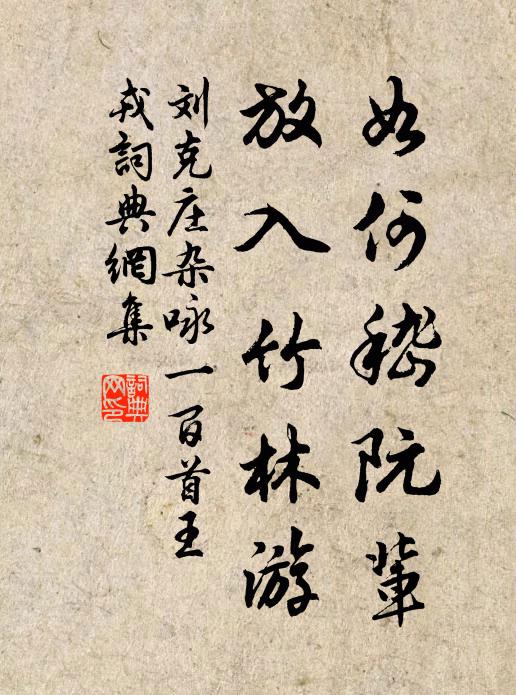 如何嵇阮辈
放入竹林游
刘克庄杂咏一百首王
戎詞典網集
詞典
网印